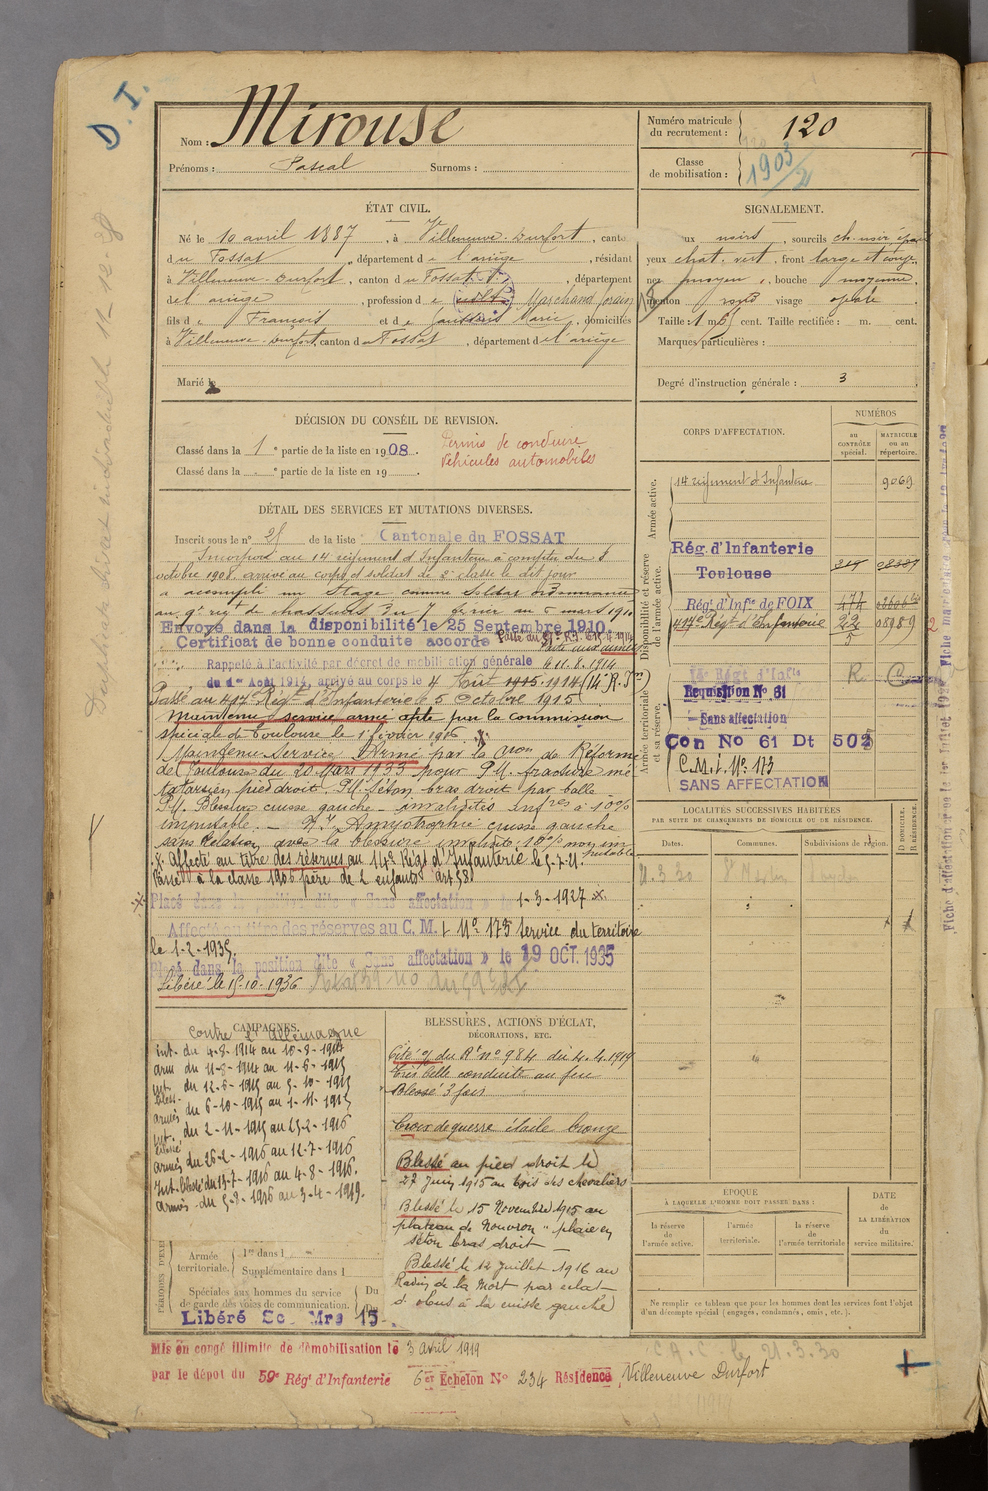 D. I.
Nom : Mirouse
Prénoms : Pascal Surnoms :
Numéro matricule du recrutement : 120
Classe de mobilisation : 1903/2
ÉTAT CIVIL.
Né le 10 avril 1887, à Villeneuve-Durfort, canton
du Fossat, département de l'ariège, résidant
à Villeneuve-Durfort, canton du Fossat, département
de l'ariège, profession de Marchand forain
fils de François et de Marie, domiciliés
à Villeneuve-Durfort, canton du Fossat, département de l'ariège
Marié le
SIGNALEMENT.
noirs, sourcils ch. noir
yeux chat. vert, front large et
nez moyen, bouche moyenne,
menton rond visage
Taille : 1 m. cent. Taille rectifiée : m. cent.
Marques particulières :
Degré d'instruction générale : 3
DÉCISION DU CONSEIL DE REVISION.
Classé dans la 1e partie de la liste en 1908.
Classé dans la e partie de la liste en 19
Permis de conduire
Véhicules automobiles
DÉTAIL DES SERVICES ET MUTATIONS DIVERSES.
Inscrit sous le n° 25 de la liste Cantonale du FOSSAT
Incorporé au 14 régiment d'Infanterie à compter du 8
octobre 1908, arrivé au corps et soldat de 2e classe le dit jour
a accompli un Stage comme Soldat ordonnance
au 9e rgt de chasseurs du 7 février au 5 mars 1910
Envoyé dans la disponibilité le 25 Septembre 1910
Certificat de bonne conduite accordé
Rappelé à l'activité par décret de mobilisation générale
du 1er Août 1914, arrivé au corps le 4 Août 1914 (14e R. Ire)
le 11.8.1914
Passé au 417e Régt d'Infanterie le 5 Octobre 1915
Maintenu service armé apte par la commission
spéciale de Toulouse le 1er février 1916
Maintenu Service Armé par la Cion de Réforme
de Toulouse du 20 Mars 1933 pour P.U. fracture mé
tatarsien pied droit. P.U. Séton bras droit par balle
P.U. Blessure cuisse gauche - invalidités infres à 10%
imputable. - Amyotrophie cuisse gauche
sans relation avec la blessure invalidité 10% non im
putable
Affecté au titre des réserves au 14e Régt d'Infanterie le 5-7-21
Passé à la classe 1906 père de 2 enfants art 58
Placé dans la position dite « Sans affectation » le 1-3-1927
Affecté au titre des réserves au C. M. I. N° 173 Service du territoire
le 1-2-1935.
Placé dans la position dite « Sans affectation » le 19 OCT. 1935
Libéré le 15-10-1936
CORPS D'AFFECTATION.
NUMÉROS
au CONTRÔLE spécial.
MATRICULE ou au répertoire.
Armée active.
14 régiment d'Infanterie 9069
Disponibilité et réserve de l'armée active.
Rég. d'Infanterie
Toulouse
Régt d'Infie de FOIX
417e Régt d'Infanterie 22 05989
Armée territoriale et sa réserve.
Régt d'Infie
Requisition No 61
Sans affectation
Con No 61 Dt 502
C.M.I. N° 173
SANS AFFECTATION
LOCALITÉS SUCCESSIVES HABITÉES
PAR SUITE DE CHANGEMENTS DE DOMICILE OU DE RÉSIDENCE.
Dates. Communes. Subdivisions de région. D. DOMICILE. R. RÉSIDENCE.
21.3.30
CAMPAGNES.
Contre l'Allemagne
int. du 4-8-1914 au 10-8-1914
arm du 11-8-1914 au 11-6-1915
int. bless. du 12-6-1915 au 5-10-1915
armées du 6-10-1915 au 1-11-1915
int. blessé du 2-11-1915 au 25-2-1916
armées du 26-2-1916 au 12-7-1916
Int. blessé du 13-7-1916 au 4-8-1916.
armées du 5-8-1916 au 3-4-1919.
BLESSURES, ACTIONS D'ÉCLAT,
DÉCORATIONS, ETC.
Cité o/ du Rt n° 984 du 4.4.1919
Très belle conduite au feu
Blessé 3 fois
Croix de guerre étoile bronze
Blessé au pied droit le
27 Juin 1915 au bois des chevaliers
Blessé le 15 Novembre 1915 au
plateau de Nouvron "plaie en
séton bras droit -
Blessé le 12 Juillet 1916 au
Ravin de la Mort par éclat
d'obus à la cuisse gauche
Armée territoriale. 1re dans l
Supplémentaire dans l
Spéciales aux hommes du service
de garde des voies de communication. Du
Libéré Sc. Mre 15-
ÉPOQUE
À LAQUELLE L'HOMME DOIT PASSER DANS :
la réserve de l'armée active.
l'armée territoriale.
la réserve de l'armée territoriale
DATE de LA LIBÉRATION du service militaire.
Ne remplir ce tableau que pour les hommes dont les services font l'objet
d'un décompte spécial (engagés, condamnés, omis, etc.).
Mis en congé illimité de démobilisation le 3 avril 1919
par le dépôt du 59e Régt d'Infanterie 6er Echelon No 234 Résidence Villeneuve Durfort
C.A.C. le 21.3.30